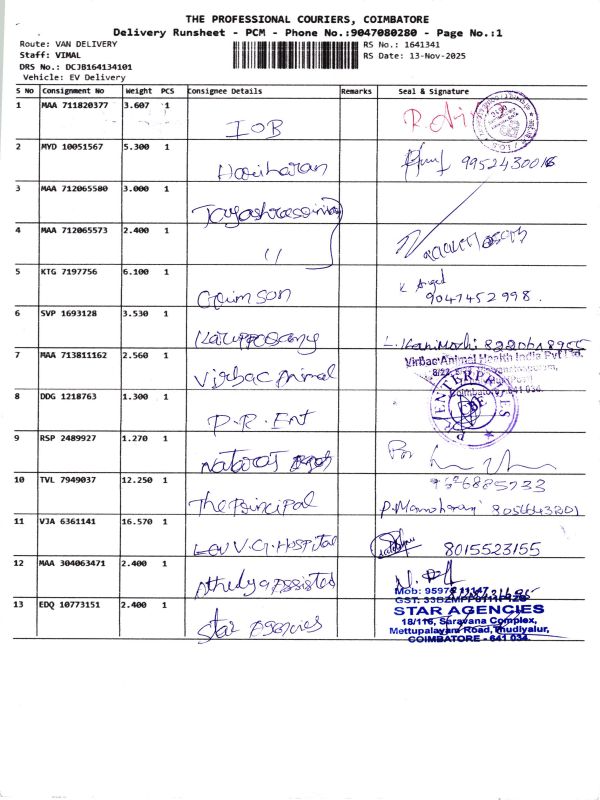 THE PROFESSIONAL COURIERS, COIMBATORE
Delivery Runsheet - PCM - Phone No.:9047080280 - Page No.:1
Route: VAN DELIVERY
RS No.: 1641341
Staff: VIMAL
RS Date: 13-Nov-2025
DRS No.: DCJB164134101
Vehicle: EV Delivery
S No Consignment No Weight PCS Consignee Details Remarks Seal & Signature
1 MAA 711820377 3.607 1 IOB
2 MYD 10051567 5.300 1 Hariharan 9952430016
3 MAA 712065580 3.000 1
4 MAA 712065573 2.400 1 11
5 KTG 7197756 6.100 1 9047452998.
6 SVP 1693128 3.530 1 Karuppasamy
7 MAA 713811162 2.560 1 Virbac Animal Virbac Animal Health India Pvt Ltd.
8 DDG 1218763 1.300 1 P.R. Ent P R ENTERPRISES CBE
9 RSP 2489927 1.270 1 For
10 TVL 7949037 12.250 1 The Principal P.Manoharan
11 VJA 6361141 16.570 1 Hospital 8015523155
12 MAA 304063471 2.400 1
13 EDQ 10773151 2.400 1 Star Agencies
STAR AGENCIES
18/116, Saravana Complex,
Mettupalayam Road, Thudiyalur,
COIMBATORE - 641 034.